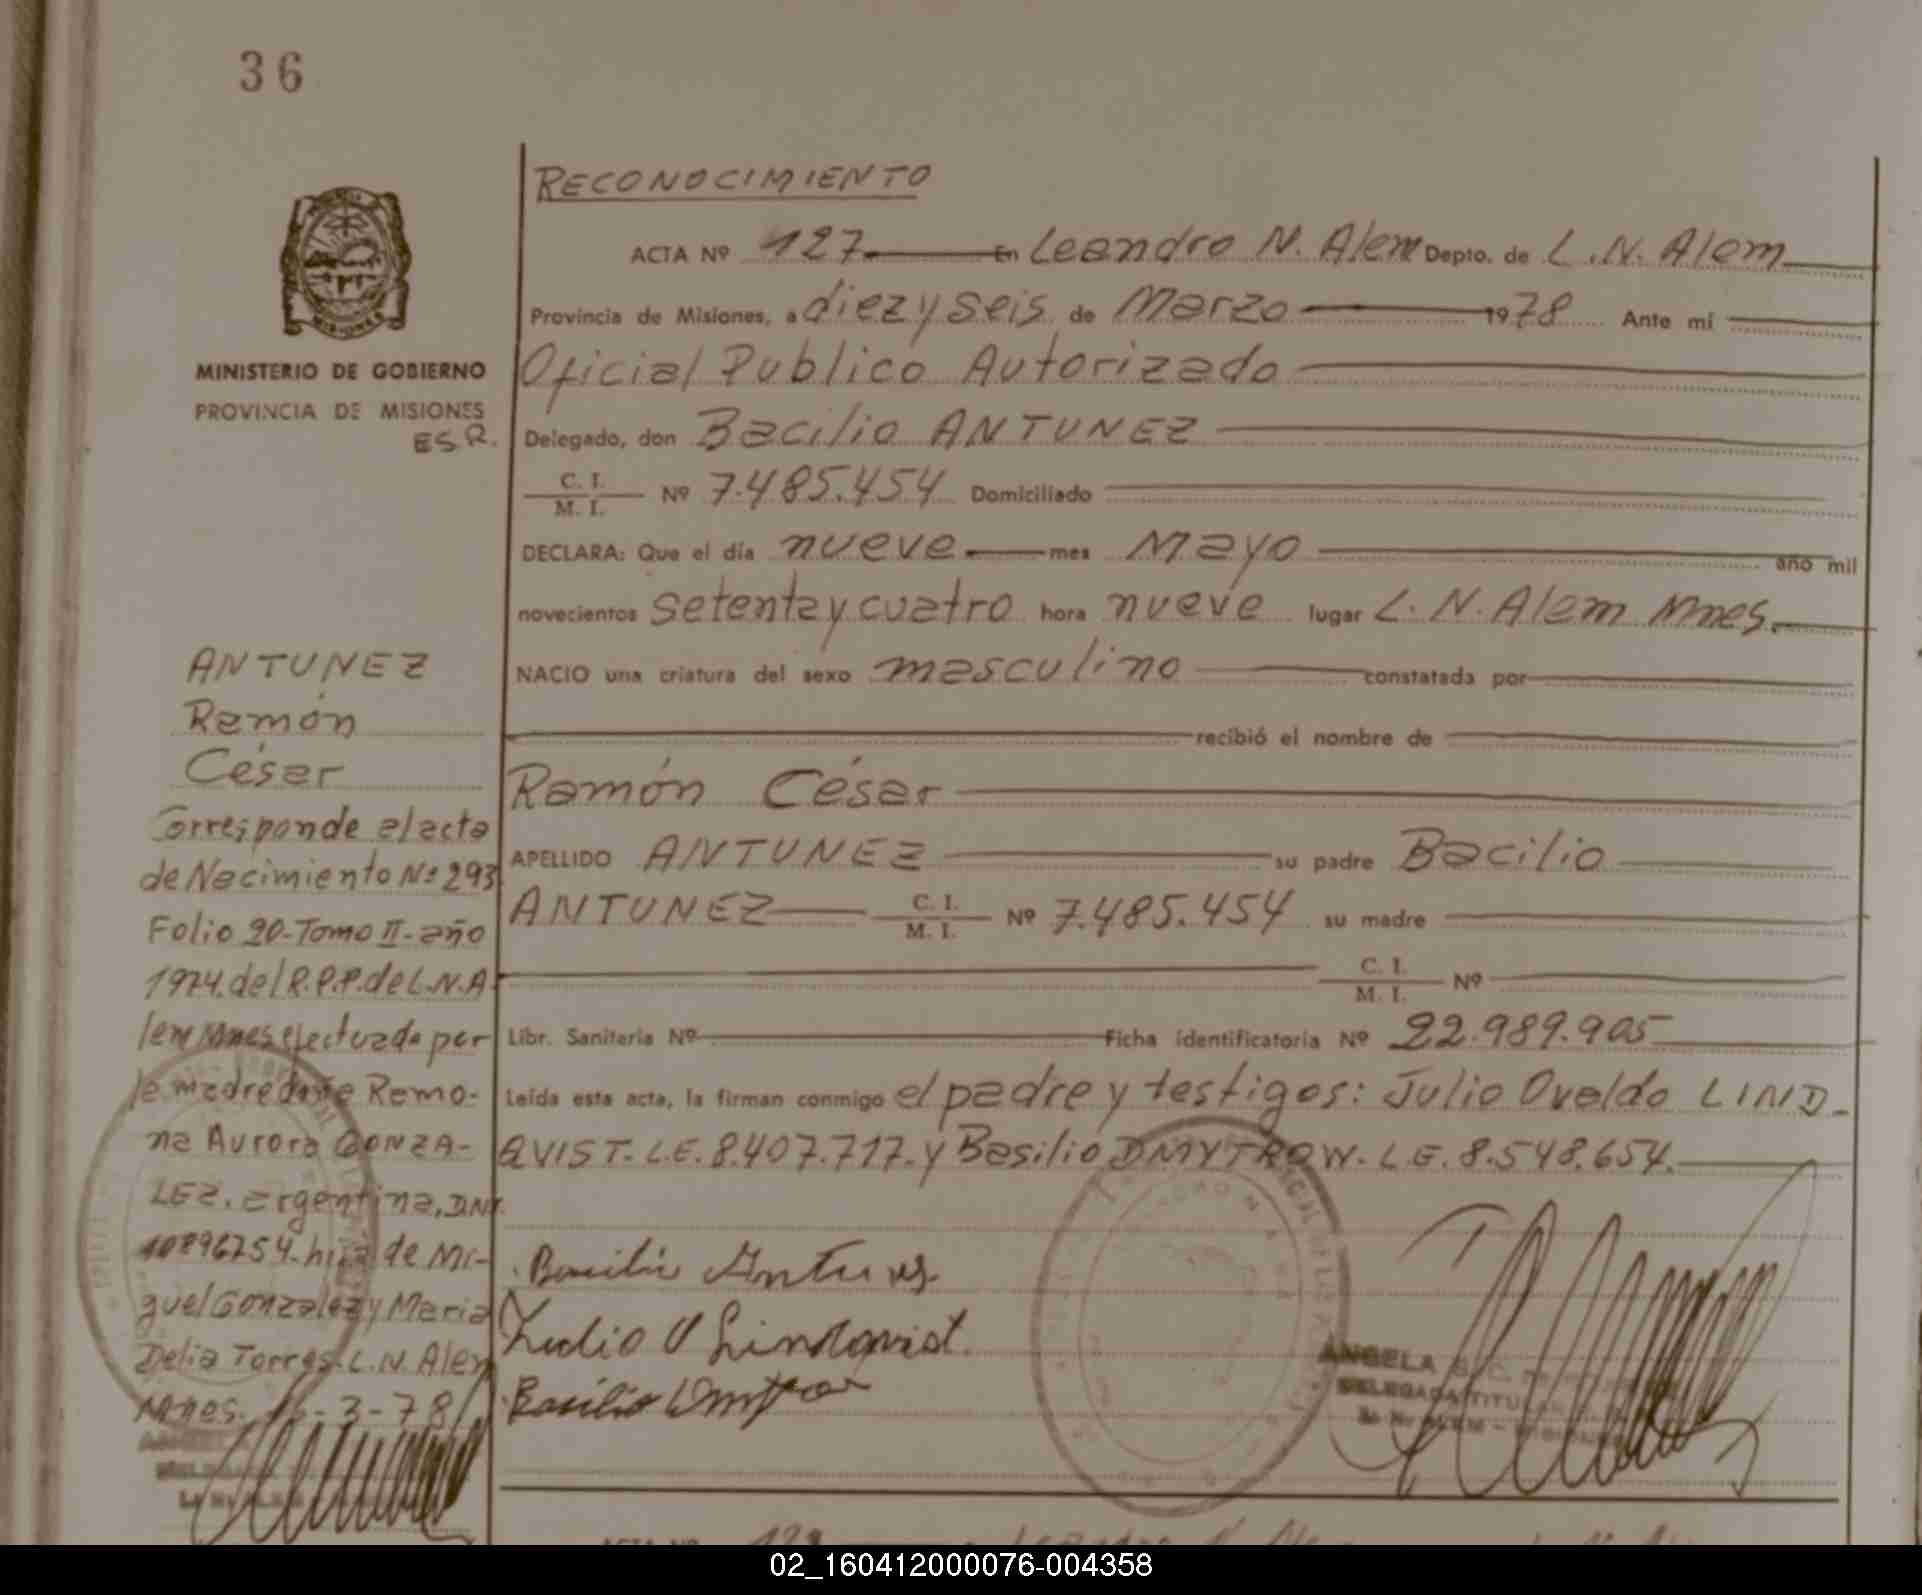 36
RECONOCIMIENTO
ACTA Nº 127 En Leandro N. Alem Depto. de L.N. Alem
Provincia de Misiones, a diez y seis de Marzo 1978 Ante mi
Oficial Publico Autorizado
Delegado, don Bacilio ANTUNEZ
C. I.
M. I. Nº 7.485.454 Domiciliado
DECLARA: Que el día nueve mes Mayo año mil
novecientos setenta y cuatro hora nueve lugar L. N. Alem Mnes.
NACIO una criatura del sexo masculino constatada por
recibió el nombre de
Ramón César
APELLIDO ANTUNEZ su padre Bacilio
ANTUNEZ C. I. M. I. Nº 7.485.454 su madre
C. I. M. I. Nº
Libr. Sanitaria Nº Ficha identificatoria Nº 22.989.905
Leída esta acta, la firman conmigo el padre y testigos: Julio Ovaldo LIND-
QVIST. L.E. 8.407.717. y Basilio DMYTROW. L.E. 8.548.654.
MISIONES
MINISTERIO DE GOBIERNO
PROVINCIA DE MISIONES
ES R.
ANTUNEZ
Ramón
César
Corresponde al acta
de Nacimiento Nº 293
Folio 90-Tomo II-año
1974. del R.P.P. de L.N.A
lem Mnes efectuada por
la madre doña Ramo-
na Aurora GONZA-
LEZ. argentina, DNI.
10896754-hija de Mi-
guel Gonzalez y Maria
Delia Torres. L.N. Alem
Mnes. 16-3-78
Basilio Antunes
Julio O Lindqvist.
Basilio
ANGELA
DELEGADA TITULAR
L. N. ALEM - MISIONES
ACTA Nº 128
02_160412000076-004358